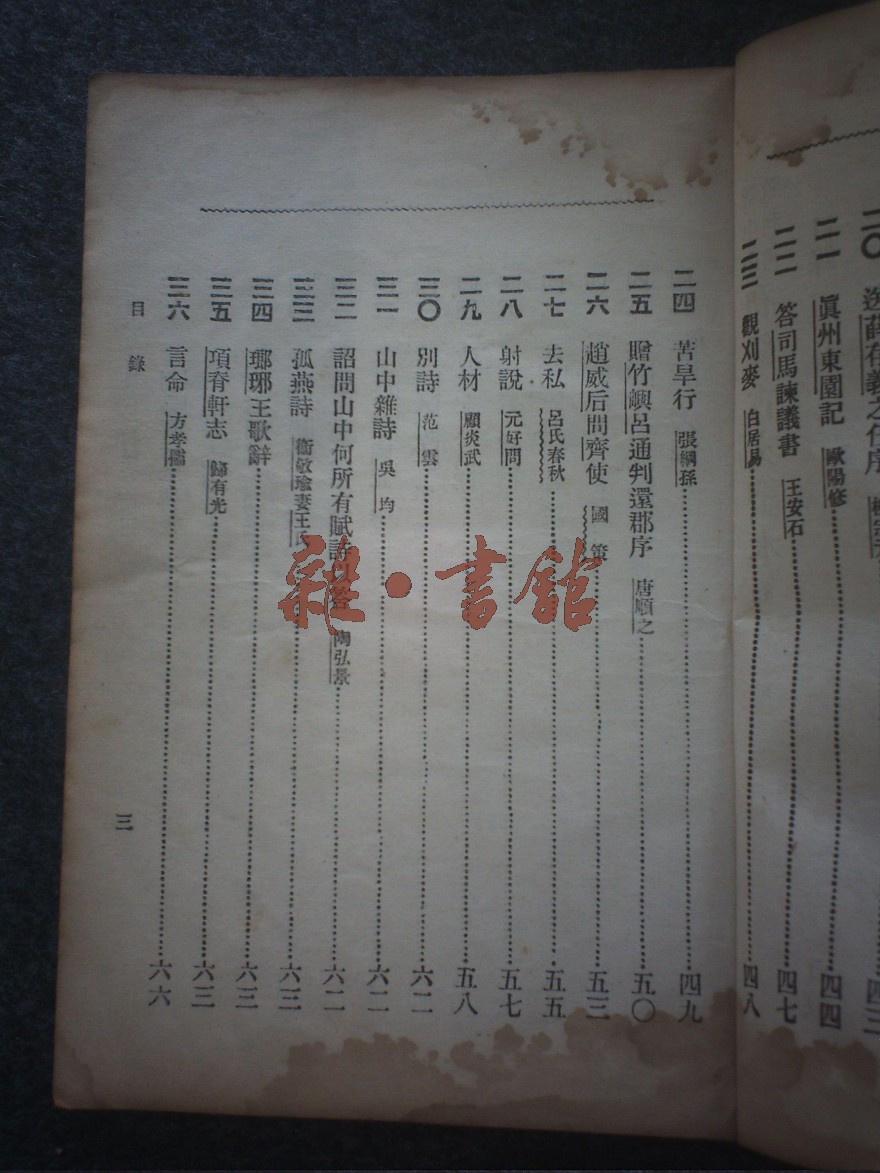 二一 眞州東園記 歐陽修 四四
二二 答司馬諫議書 王安石 四七
二三 觀刈麥 白居易 四八
二四 苦旱行 張綱孫 四九
二五 贈竹嶼呂通判還郡序 唐順之 五〇
二六 趙威后問齊使 國策 五三
二七 去私 呂氏春秋 五五
二八 射說 元好問 五七
二九 人材 顧炎武 五八
三〇 別詩 范雲 六二
三一 山中雜詩 吳均 六二
三二 詔問山中何所有賦詩以答 陶弘景 六二
三三 孤燕詩 衞敬瑜妻王氏 六三
三四 瑯琊王歌辭 六三
三五 項脊軒志 歸有光 六三
三六 言命 方孝孺 六六
目錄
三
雜·書館